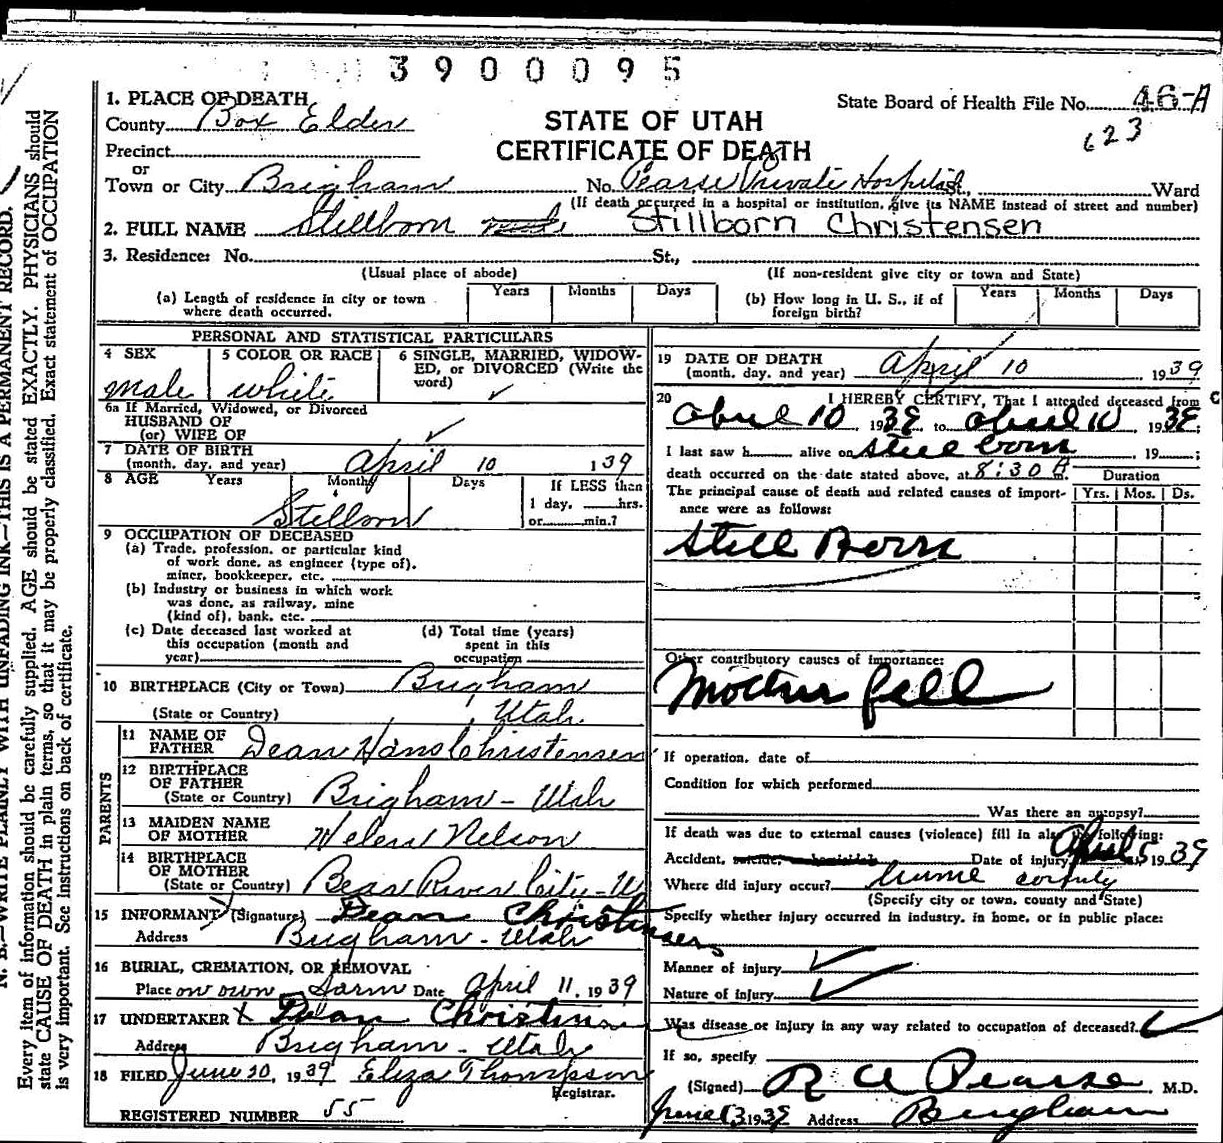 3900095
State Board of Health File No. 46-A
623
1. PLACE OF DEATH
County Box Elder
STATE OF UTAH
CERTIFICATE OF DEATH
Precinct
or
Town or City Brigham No. Pearse Private Hospital, Ward
(If death occurred in a hospital or institution, give its NAME instead of street and number)
2. FULL NAME Stillborn Stillborn Christensen
3. Residence: No. St.,
(Usual place of abode) (If non-resident give city or town and State)
(a) Length of residence in city or town where death occurred. Years Months Days
(b) How long in U. S., if of foreign birth? Years Months Days
PERSONAL AND STATISTICAL PARTICULARS
4 SEX male
5 COLOR OR RACE white
6 SINGLE, MARRIED, WIDOW-
ED, or DIVORCED (Write the
word) ✓
6a If Married, Widowed, or Divorced
HUSBAND OF
(or) WIFE OF ✓
7 DATE OF BIRTH
(month, day, and year) April 10 139
8 AGE Years Months Days If LESS than
1 day, hrs.
or min.?
Stillborn
9 OCCUPATION OF DECEASED
(a) Trade, profession, or particular kind
of work done, as engineer (type of),
miner, bookkeeper, etc.
(b) Industry or business in which work
was done, as railway, mine
(kind of), bank, etc.
(c) Date deceased last worked at
this occupation (month and
year)
(d) Total time (years)
spent in this
occupation
10 BIRTHPLACE (City or Town) Brigham
(State or Country) Utah
PARENTS
11 NAME OF
FATHER Dean Hans Christensen
12 BIRTHPLACE
OF FATHER
(State or Country) Brigham - Utah
13 MAIDEN NAME
OF MOTHER Helen Nelson
14 BIRTHPLACE
OF MOTHER
(State or Country) Bear River City - U
15 INFORMANT (Signature) Dean Christensen
Address Brigham - Utah
16 BURIAL, CREMATION, OR REMOVAL
Place on own farm Date April 11, 1939
17 UNDERTAKER x Dean Christensen
Address Brigham - Utah
18 FILED June 20, 1939 Eliza Thompson
Registrar.
REGISTERED NUMBER 55
19 DATE OF DEATH
(month, day, and year) April 10, 1939
20 I HEREBY CERTIFY, That I attended deceased from
April 10 1939, to April 10, 1939;
I last saw h alive on still born 19 ;
death occurred on the date stated above, at 8:30 A
Duration
The principal cause of death and related causes of import-
ance were as follows: Yrs. Mos. Ds.
Still Born
Other contributory causes of importance:
Mother fell
If operation, date of
Condition for which performed
Was there an autopsy?
If death was due to external causes (violence) fill in also the following:
Accident, suicide, homicide Date of injury April 5 1939
Where did injury occur? home county
(Specify city or town, county and State)
Specify whether injury occurred in industry, in home, or in public place:
Manner of injury ✓
Nature of injury ✓
Was disease or injury in any way related to occupation of deceased? ✓
If so, specify
(Signed) R A Pearse M.D.
June 13 1939 Address Brigham
N. B.—WRITE PLAINLY WITH UNFADING INK—THIS IS A PERMANENT RECORD.
Every item of information should be carefully supplied. AGE should be stated EXACTLY. PHYSICIANS should
state CAUSE OF DEATH in plain terms, so that it may be properly classified. Exact statement of OCCUPATION
is very important. See Instructions on back of certificate.